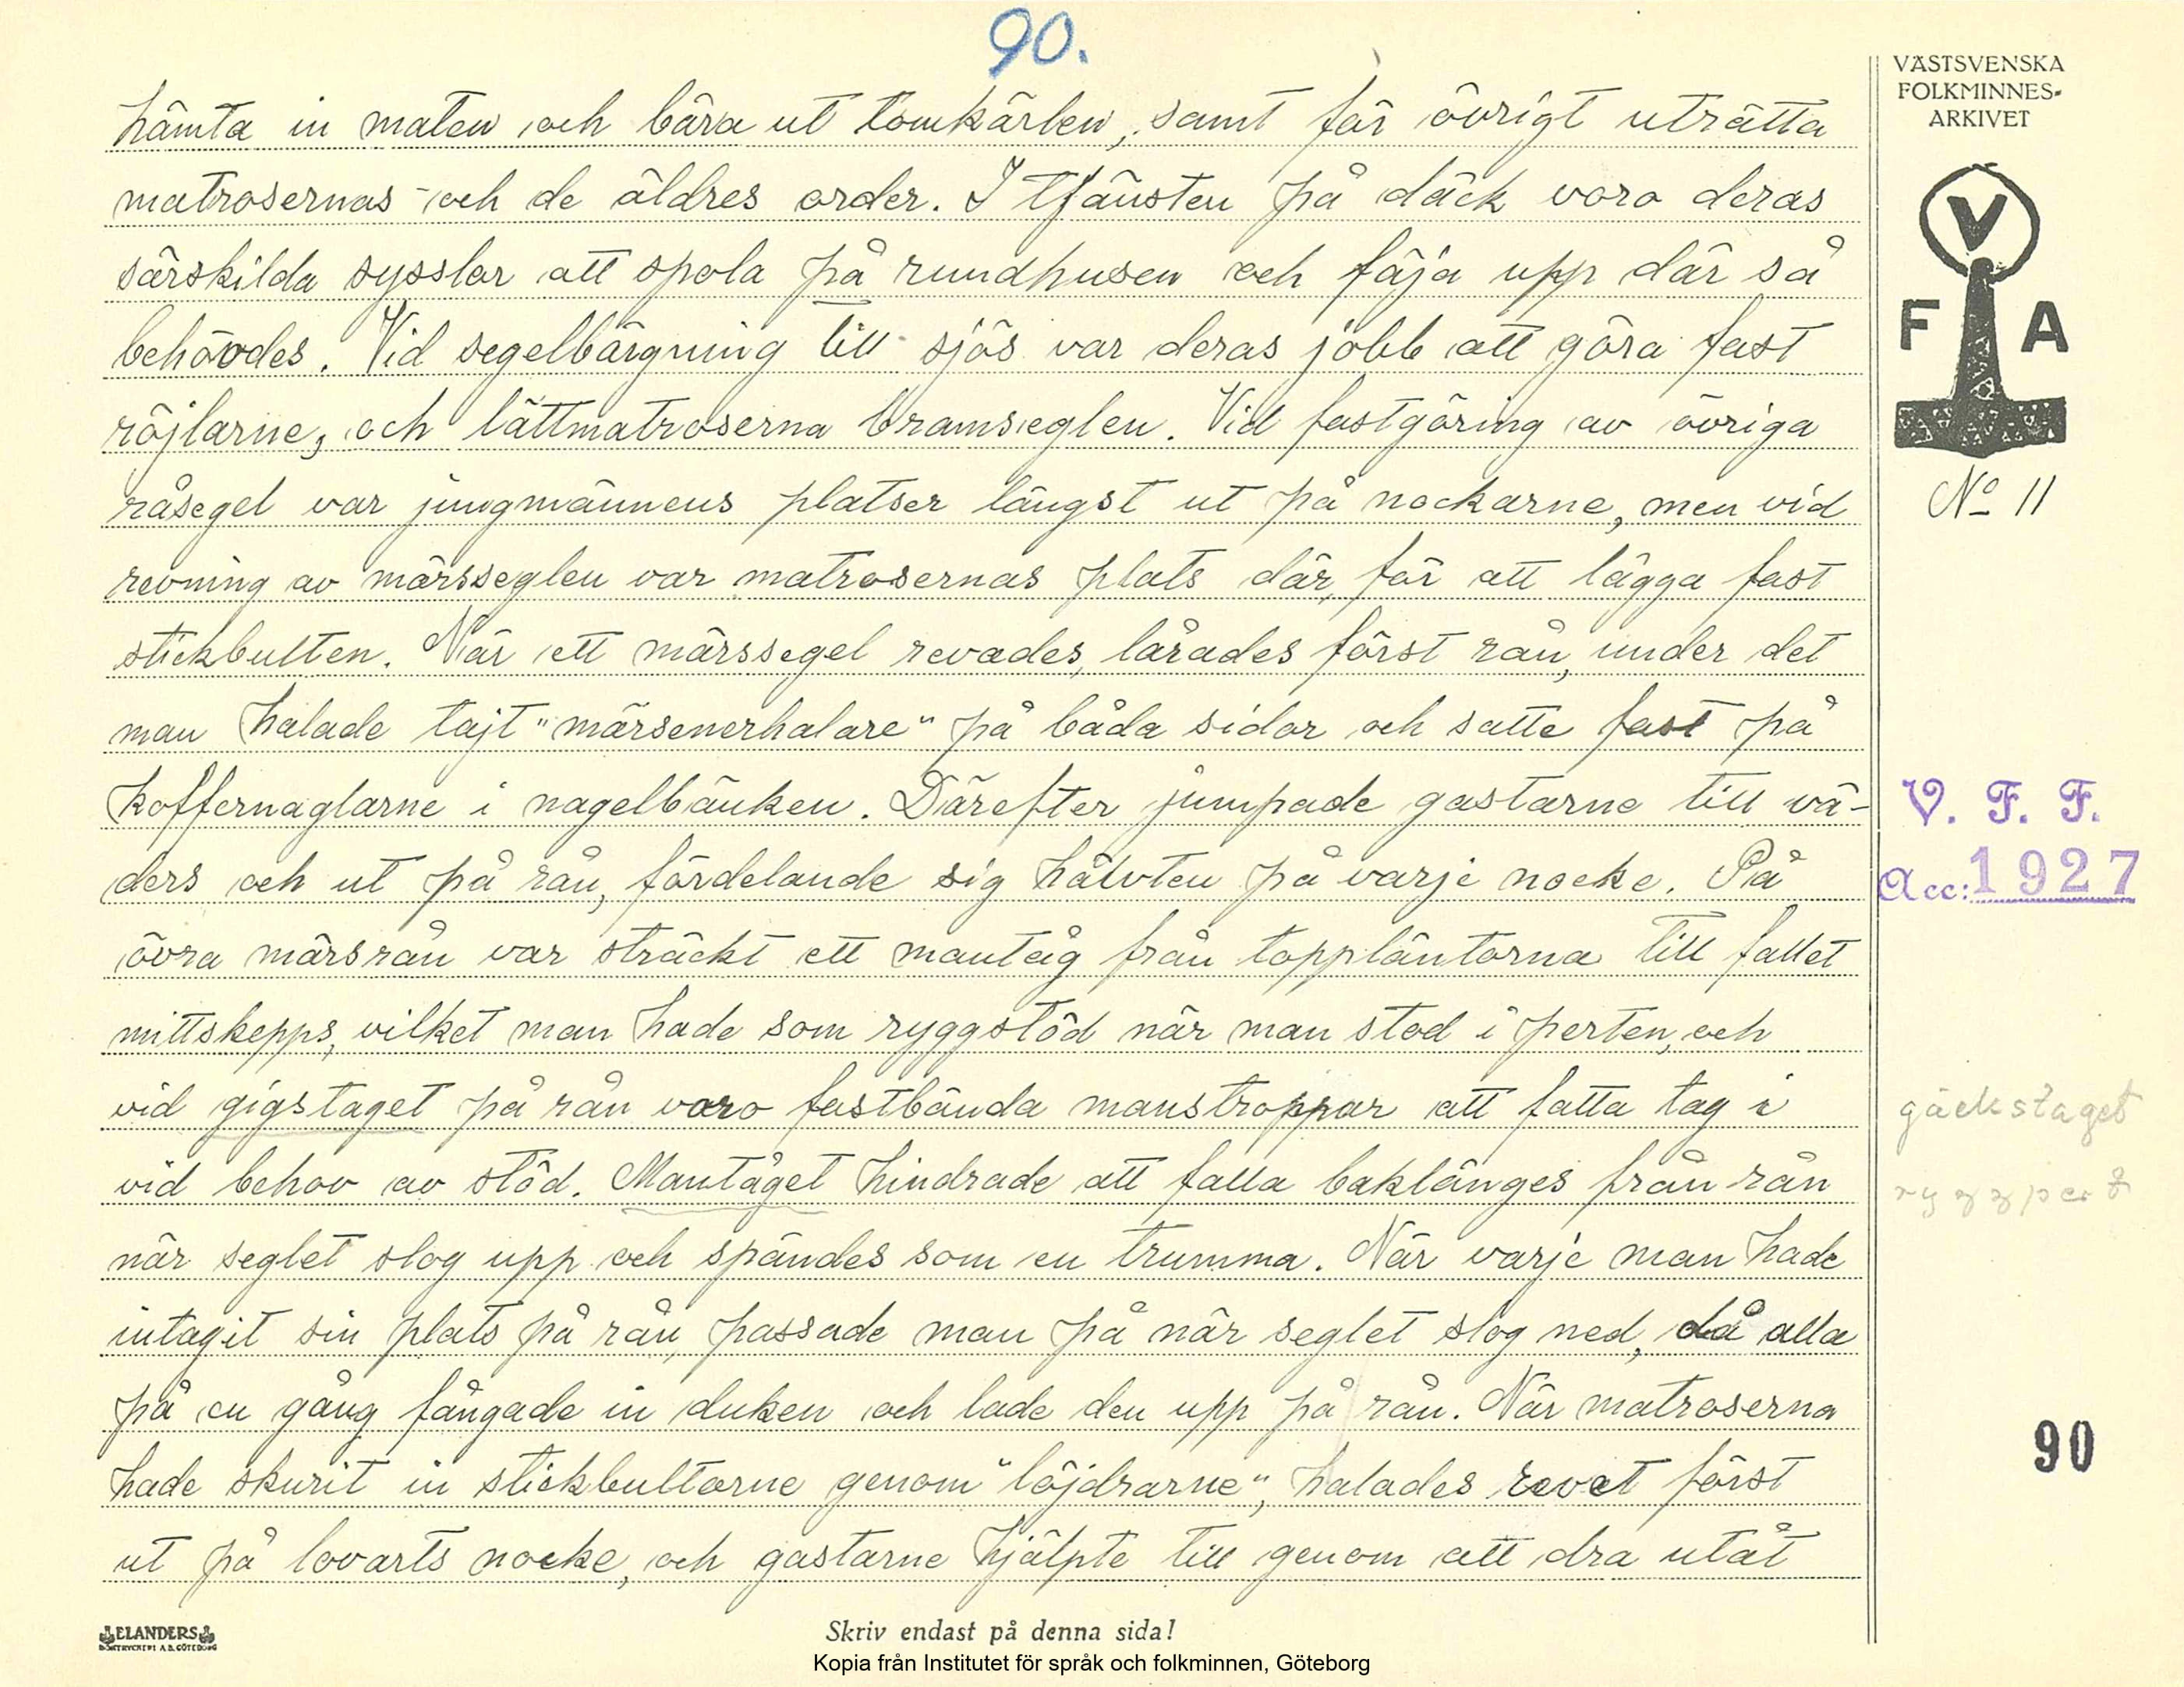 90.
hämta in maten och bära ut tomkärlen, samt för övrigt uträtta
matrosernas och de äldres order. I tjänsten på däck voro deras
särskilda sysslor att spola på rundhusen och fäja upp där så
behövdes. Vid segelbärgning till sjös var deras jobb att göra fast
röjlarne, och lättmatroserna bramseglen. Vid fastgöring av övriga
råsegel var jungmännens platser längst ut på nockarne, men vid
revning av märsseglen var matrosernas plats där, för att lägga fast
stickbulten. När ett märssegel revades, lårades först rån, under det
man halade tajt "märsenerhalare" på båda sidor och satte fast på
koffernaglarne i nagelbänken. Därefter jumpade gastarne till vä-
ders och ut på rån, fördelande sig hälvten på varje nocke. På
övra märsrån var sträckt ett mantåg från toppläntorna till fallet
mittskepps, vilket man hade som ryggstöd när man stod i perten, och
vid gigstaget på rån voro fastbända manstroppar att fatta tag i
vid behov av stöd. Mantåget hindrade att falla baklänges från rån
när seglet slog upp och spändes som en trumma. När varje man hade
intagit sin plats på rån, passade man på när seglet slog ned, då alla
på en gång fångade in duken och lade den upp på rån. När matroserna
hade skurit in stickbultarne genom "löjdrarne", halades revet först
ut på lovarts nocke, och gastarne hjälpte till genom att dra utåt
VÄSTSVENSKA
FOLKMINNES-
ARKIVET
V
F A
No 11
V. F. F.
Acc: 1927
gäckstaget
ryggpert
90
ELANDERS
BOKTRYCKERI A.B. GÖTEBORG
Skriv endast på denna sida!
Kopia från Institutet för språk och folkminnen, Göteborg